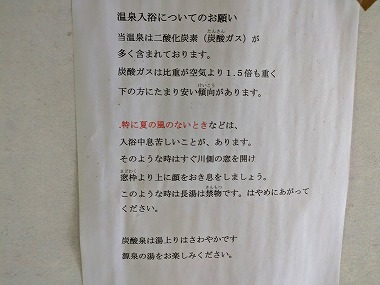 温泉入浴についてのお願い
当温泉は二酸化炭素（炭酸ガス）が
多く含まれております。
炭酸ガスは比重が空気より１.５倍も重く
下の方にたまり安い傾向があります。
.特に夏の風のないときなどは、
入浴中息苦しいことが、あります。
そのような時はすぐ川側の窓を開け
窓枠より上に顔をおき息をしましょう。
このような時は長湯は禁物です。はやめにあがって
ください。
炭酸泉は湯上りはさわやかです
源泉の湯をお楽しみください。